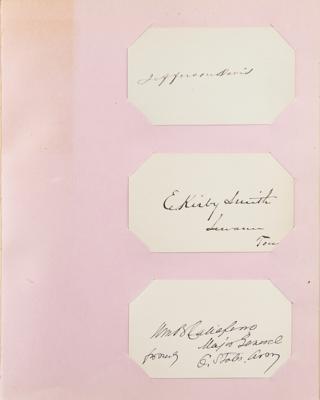 Jefferson Davis
E. Kirby Smith
Sewanee
Ten
Wm B
Major General
formerly
C. States Army